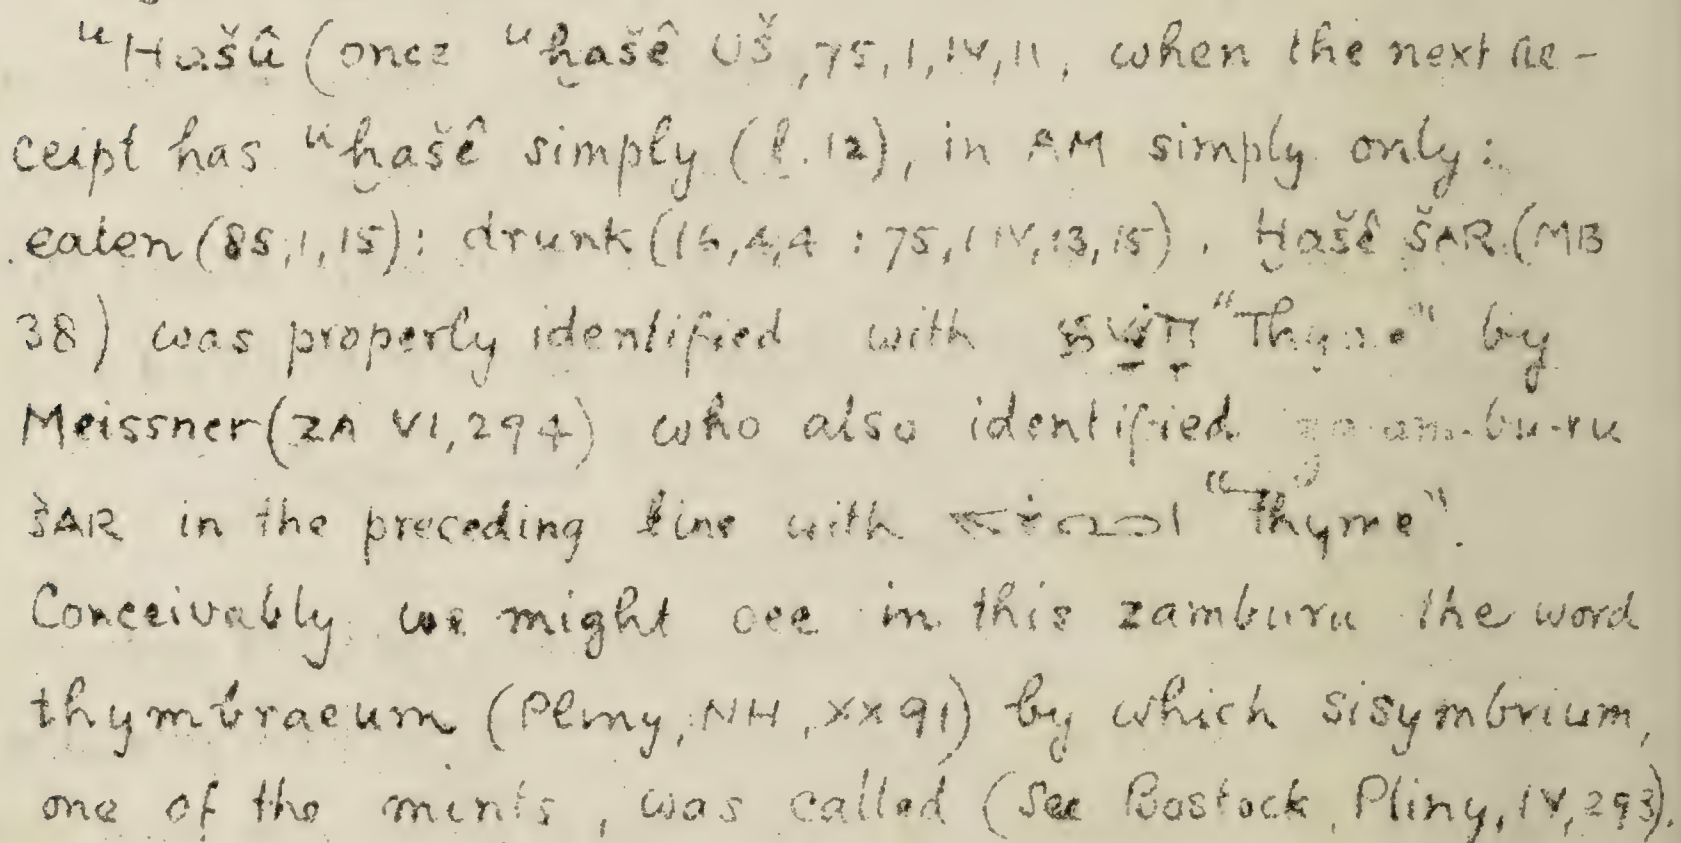 ᵘHašû (once ᵘḫašê UŠ, 75,1,IV,11, when the next re-
ceipt has ᵘḫašê simply (l.12), in AM simply only:
eaten (85,1,15): drunk (16,4,4 : 75,1 IV,13,15). Ḫašê ŠAR (MB
38) was properly identified with "Thyme" by
Meissner (ZA VI,294) who also identified za-am-bu-ru
ŠAR in the preceding line with "Thyme".
Conceivably we might see in this zamburu the word
thymbraeum (Pliny, NH, XX 91) by which sisymbrium,
one of the mints, was called (see Bostock, Pliny, IV, 293).